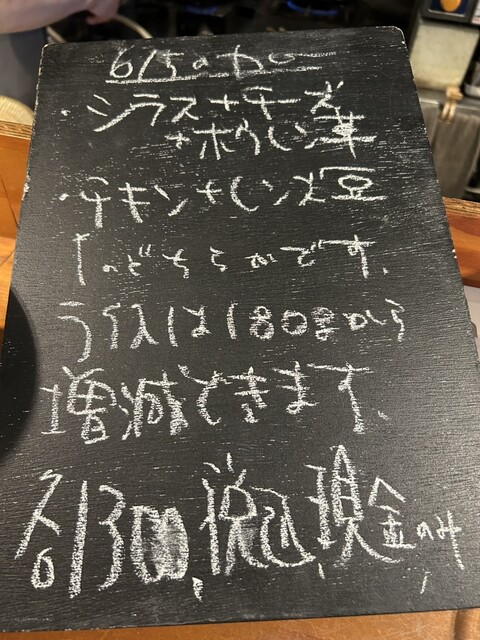 6/5のカレー
・シラス+チーズ
+ホウレン草
・チキン+レンズ豆
↑のどちらかです。
ライスは180gから
増減できます。
各1300、税込、現金のみ、